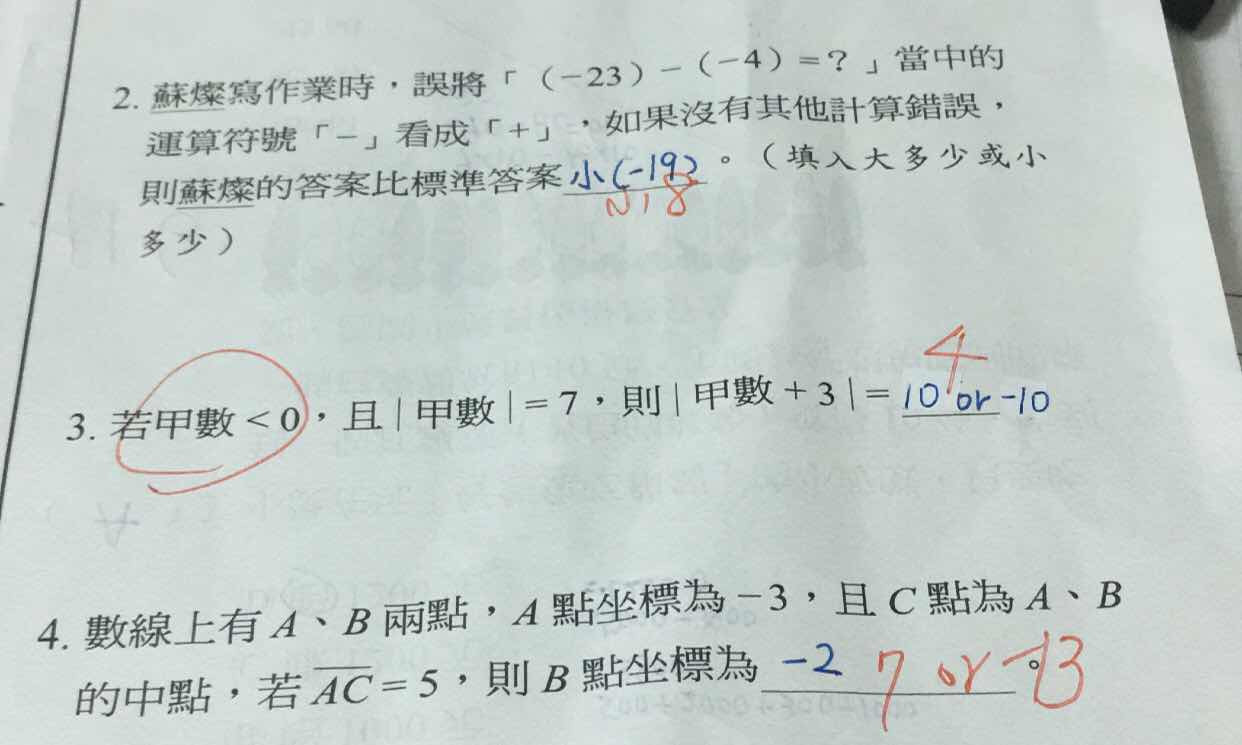 2. 蘇燦寫作業時，誤將「(-23)-(-4)=?」當中的
運算符號「-」看成「+」，如果沒有其他計算錯誤，
則蘇燦的答案比標準答案小(-19)。(填入大多少或小
小8
多少)
4
3. 若甲數<0，且|甲數|=7，則|甲數+3|=10 or -10
4. 數線上有A、B兩點，A點坐標為-3，且C點為A、B
的中點，若AC=5，則B點坐標為 -2 7 or -13。